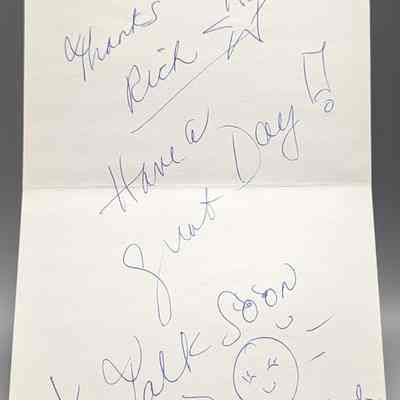 Thanks
Rich
Have a
great Day!
Talk Soon